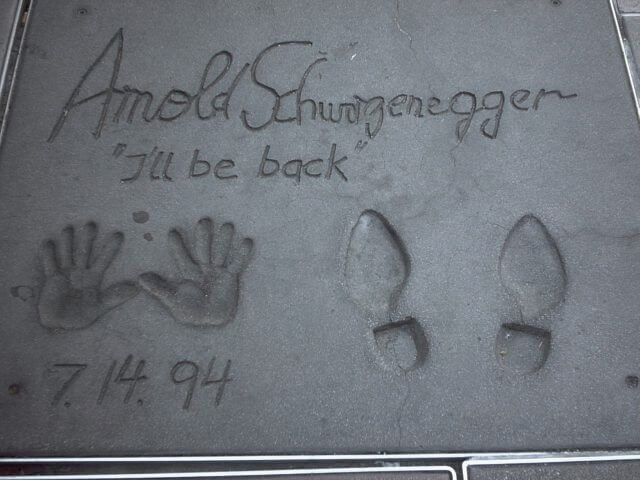 Arnold Schwarzenegger
"I'll be back"
7.14.94